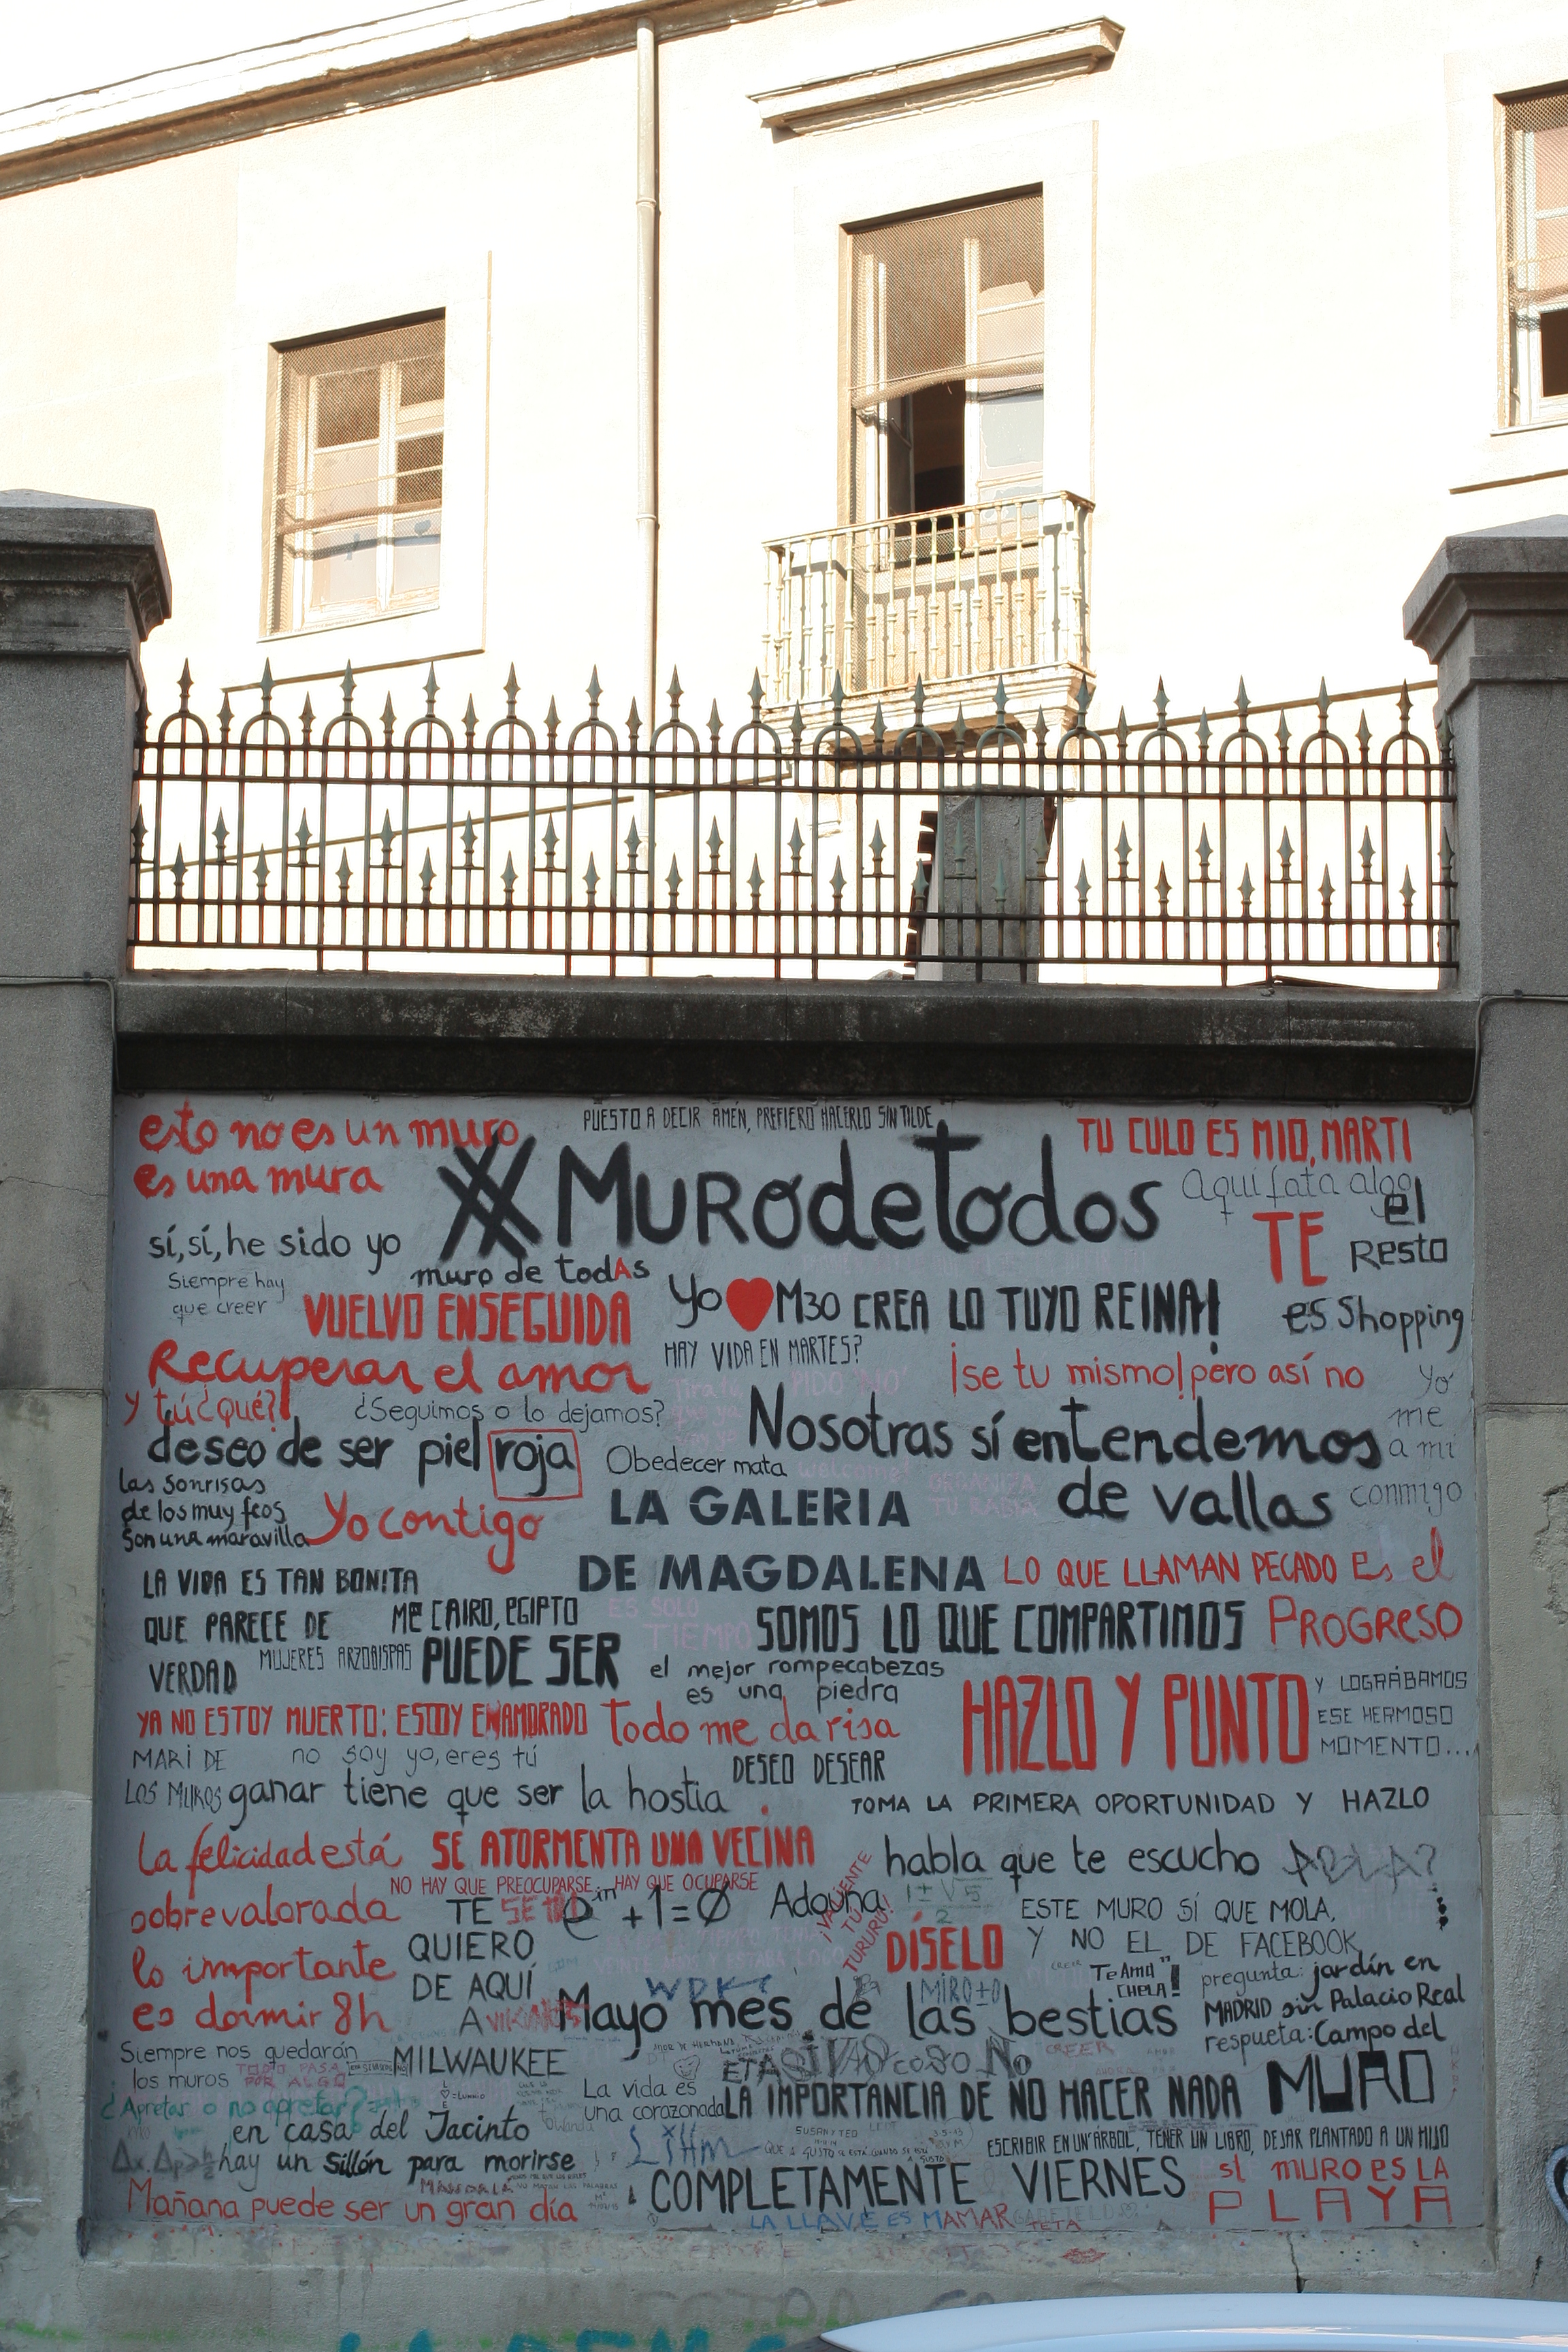 esto no es un muro
es una mura
PUESTO A DECIR AMÉN, PREFIERO HACERLO SIN TILDE
TU CULO ES MIO, MARTI
#MUROdetodos
Aquí fata algo
sí, sí, he sido yo
muro de todAs
TE
el
Resto
es Shopping
Siempre hay
que creer
VUELVO ENSEGUIDA
Yo ❤ M30
CREA LO TUYO REINA!
HAY VIDA EN MARTES?
Recuperar el amor
¡se tu mismo! pero así no
Yo
me
a mi
conmigo
y tú ¿qué?
¿Seguimos o lo dejamos?
deseo de ser piel roja
Obedecer mata
Nosotras sí entendemos
de vallas
welcome
ORGANIZA
TU RABIA
las sonrisas
de los muy feos
son una maravilla
Yo contigo
LA GALERIA
DE MAGDALENA
LO QUE LLAMAN PECADO Es el
PROGRESO
LA VIDA ES TAN BONITA
QUE PARECE DE
VERDAD
Me CAIRO, EGIPTO
ES SOLO
TIEMPO
SOMOS LO QUE COMPARTIMOS
MUJERES ARZOBISPAS
PUEDE SER
el mejor rompecabezas
es una piedra
HAZLO Y PUNTO
Y LOGRÁBAMOS
ESE HERMOSO
MOMENTO...
YA NO ESTOY MUERTO: ESTOY ENAMORADO
Todo me da risa
MARI DE
LOS MUROS
no soy yo, eres tú
DESEO DESEAR
ganar tiene que ser la hostia
TOMA LA PRIMERA OPORTUNIDAD Y HAZLO
La felicidad está
sobrevalorada
SE ATORMENTA UNA VECINA
habla que te escucho
NO HAY QUE PREOCUPARSE. HAY QUE OCUPARSE
TE
QUIERO
DE AQUÍ
A
e^iπ + 1 = Ø
¡VALIENTE
TU
TURURU!
1±√5
2
ESTE MURO SÍ QUE MOLA,
Y NO EL DE FACEBOOK
DÍSELO
lo importante
es dormir 8h
Te Amo
CHELA!
Mayo mes de las bestias
pregunta: jardín en
MADRID sin Palacio Real
respueta: Campo del
MURO
Siempre nos quedarán
los muros
TODO PASA
POR ALGO
MILWAUKEE
La vida es
una corazonada
LA IMPORTANCIA DE NO HACER NADA
¿Apretar o no apretar?
en casa del Jacinto
hay un sillón para morirse
ESCRIBIR EN UN ÁRBOL, TENER UN LIBRO, DEJAR PLANTADO A UN HIJO
COMPLETAMENTE VIERNES
Mañana puede ser un gran día
LA LLAVE ES MAMAR
sl MURO es LA
PLAYA